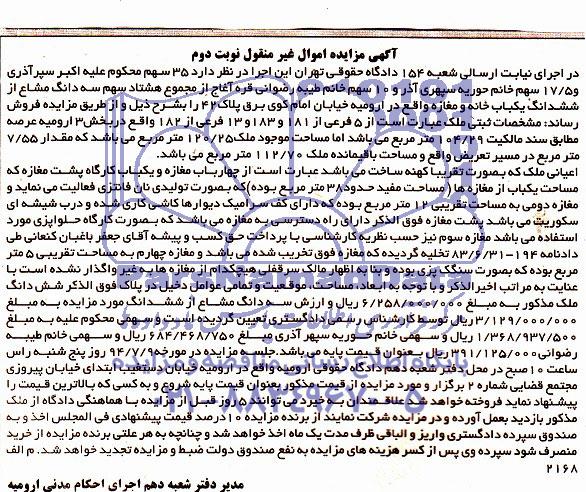 آگهی مزایده اموال غیر منقول نوبت دوم
در اجرای نیابت ارسالی شعبه ۱۵۴ دادگاه حقوقی تهران این اجرا در نظر دارد ۳۵ سهم محکوم علیه اکبر سپر آذری
و ۱۷/۵ سهم خانم حوریه سپهری آذر و ۱۰ سهم خانم طیبه رضوانی قره آغاج از مجموع هشتاد سهم سه دانگ مشاع از
ششدانگ یکباب خانه و مغازه واقع در ارومیه خیابان امام کوی برق پلاک ۴۲ را بشرح ذیل و از طریق مزایده فروش
رساند: مشخصات ثبتی ملک عبارت است از ۵ فرعی از ۱۸۱ و ۱۸۳ و ۱۳ فرعی از ۱۸۲ واقع در بخش ۳ ارومیه عرصه
مطابق سند مالکیت ۱۰۴/۲۹ متر مربع می باشد اما مساحت موجود ملک ۱۲۰/۲۵ متر مربع می باشد که مقدار ۷/۵۵
متر مربع در مسیر تعریض واقع و مساحت باقیمانده ملک ۱۱۲/۷۰ متر مربع می باشد.
اعیانی ملک که بصورت تقریبا کهنه ساخت می باشد عبارت است از چهارباب مغازه و یکباب کارگاه پشت مغازه که
مساحت یکباب از مغازه ها (مساحت مفید حدود ۳۸ متر مربع بوده) که بصورت تولیدی نان فانتزی فعالیت می نماید و
مغازه دومی به مساحت تقریبی ۱۲ متر مربع بوده که دارای کف سرامیک دیوارها کاشی کاری شده و درب شیشه ای
سکوریت می باشد پشت مغازه فوق الذکر دارای راه دسترسی به مغازه می باشد که بصورت کارگاه حلواپزی مورد
استفاده می باشد مغازه سوم نیز حسب نظریه کارشناسی با پرداخت حق کسب و پیشه آقای جعفر باغبان کنعانی طی
دادنامه ۱۹۴-۸۳/۶/۳۱ تخلیه گردیده که مغازه فوق تخریب شده می باشد و مغازه چهارم به مساحت تقریبی ۵ متر
مربع بوده که بصورت سنگک پزی بوده و بنا به اظهار مالک سرقفلی هیچکدام از مغازه ها به غیر واگذار نشده است با
عنایت به مراتب اخیر الذکر و با توجه به ابعاد، مساحت، موقعیت و تمامی عوامل دخیل در پلاک فوق الذکر شش دانگ
ملک مذکور به مبلغ ۶/۲۵۸/۰۰۰/۰۰۰ ریال و ارزش سه دانگ مشاع از ششدانگ مورد مزایده به مبلغ
۳/۱۲۹/۰۰۰/۰۰۰ ریال توسط کارشناس رسمی دادگستری تعیین گردیده است و سهمی محکوم علیه به مبلغ
۱/۳۶۸/۹۳۷/۵۰۰ ریال و سهمی خانم حوریه سپهر آذری مبلغ ۶۸۴/۴۶۸/۷۵۰ ریال و سهمی خانم طیبه
رضوانی ۳۹۱/۱۲۵/۰۰۰ ریال بعنوان قیمت پایه می باشد. جلسه مزایده در مورخه ۹۴/۷/۹ روز پنج شنبه راس
ساعت ۱۰ صبح در محل دفتر شعبه دهم دادگاه حقوقی ارومیه واقع در ارومیه خیابان دستغیب ابتدای خیابان پیروزی
مجتمع قضایی شماره ۲ برگزار و مورد مزایده از قیمت مذکور بعنوان قیمت پایه شروع و به کسی که بالاترین قیمت را
پیشنهاد نماید فروخته خواهد شد علاقمندان به خرید می توانند ۵ روز قبل از مزایده با هماهنگی دادگاه از ملک
مذکور بازدید بعمل آورده و در مزایده شرکت نمایند از برنده مزایده ۱۰ درصد قیمت پیشنهادی فی المجلس اخذ و به
صندوق سپرده دادگستری واریز و الباقی ظرف مدت یک ماه اخذ خواهد شد و چنانچه به هر علتی برنده مزایده از خرید
منصرف شود سپرده وی پس از کسر هزینه های مزایده به نفع صندوق دولت ضبط و مزایده تجدید خواهد شد. م الف
۲۱۶۸
مدیر دفتر شعبه دهم اجرای احکام مدنی ارومیه